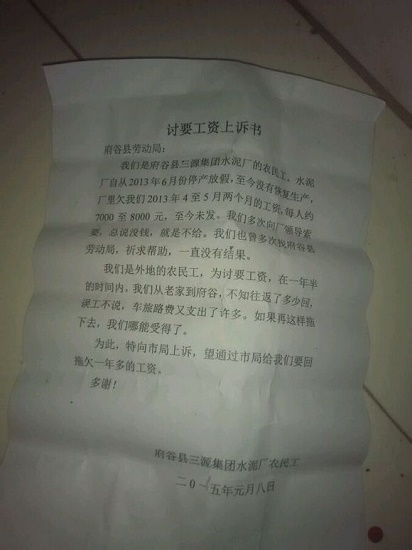 讨要工资上诉书
府谷县劳动局：
我们是府谷县三源集团水泥厂的农民工，水泥
厂自从2013年6月份停产放假，至今没有恢复生产，
厂里欠我们2013年4至5月两个月的工资，每人约
7000至8000元，至今未发。我们多次向厂领导索
要，总说没钱，就是不给。我们也曾多次找府谷县
劳动局，祈求帮助，一直没有结果。
我们是外地的农民工，为讨要工资，在一年半
的时间内，我们从老家到府谷，不知往返了多少回，
误工不说，车旅路费又支出了许多。如果再这样拖
下去，我们哪能受得了。
为此，特向市局上诉，望通过市局给我们要回
拖欠一年多的工资。
多谢！
府谷县三源集团水泥厂农民工
二0一五年元月八日